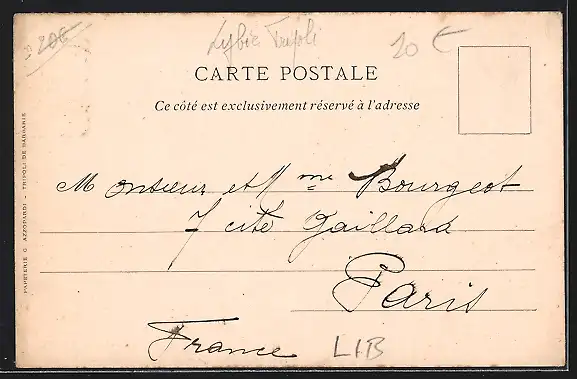 20€
Lybie Tripoli
20 €
CARTE POSTALE
Ce côté est exclusivement réservé à l'adresse
Monsieur et Mme Bourgeot
7 cité Gaillard
Paris
France
LIB
PAPETERIE G. AZZOPARDI - TRIPOLI DE BARBARIE